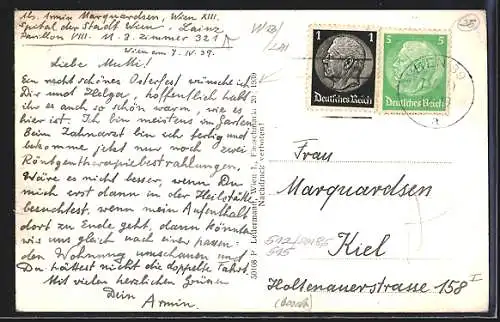 Abs. Armin Marquardsen, Wien XIII.
Spital der Stadt Wien - Lainz
Pavillon VIII. II. 3. Zimmer 321
Wien am 7. IV. 39.
Liebe Mutti!
Ein recht schönes Osterfest wünsche ich
Dir und Helga, hoffentlich habt
ihr es auch so schön warm, wie es
hier ist. Ich bin meistens im Garten
Beim Zahnarzt bin ich fertig und
bekomme jetzt nur noch zwei
Röntgentherapiebestrahlungen.
Wäre es nicht besser, wenn Du
mich erst dann in der Heilstätte
besuchtest, wenn mein Aufenthalt
dort zu Ende geht, dann könnten
wir uns gleich nach einer passen-
den Wohnung umschauen und
Du hättest nicht die doppelte Fahrt.
Mit vielen herzlichen Grüßen
Dein
Armin.
50068 P. Ledermann, Wien I., Fleischmarkt 20. 1939
Nachdruck verboten!
1 1
Deutsches Reich
5 5
Deutsches Reich
WIEN
25
Frau
Marquardsen
Kiel
Holtenauerstrasse 158 I